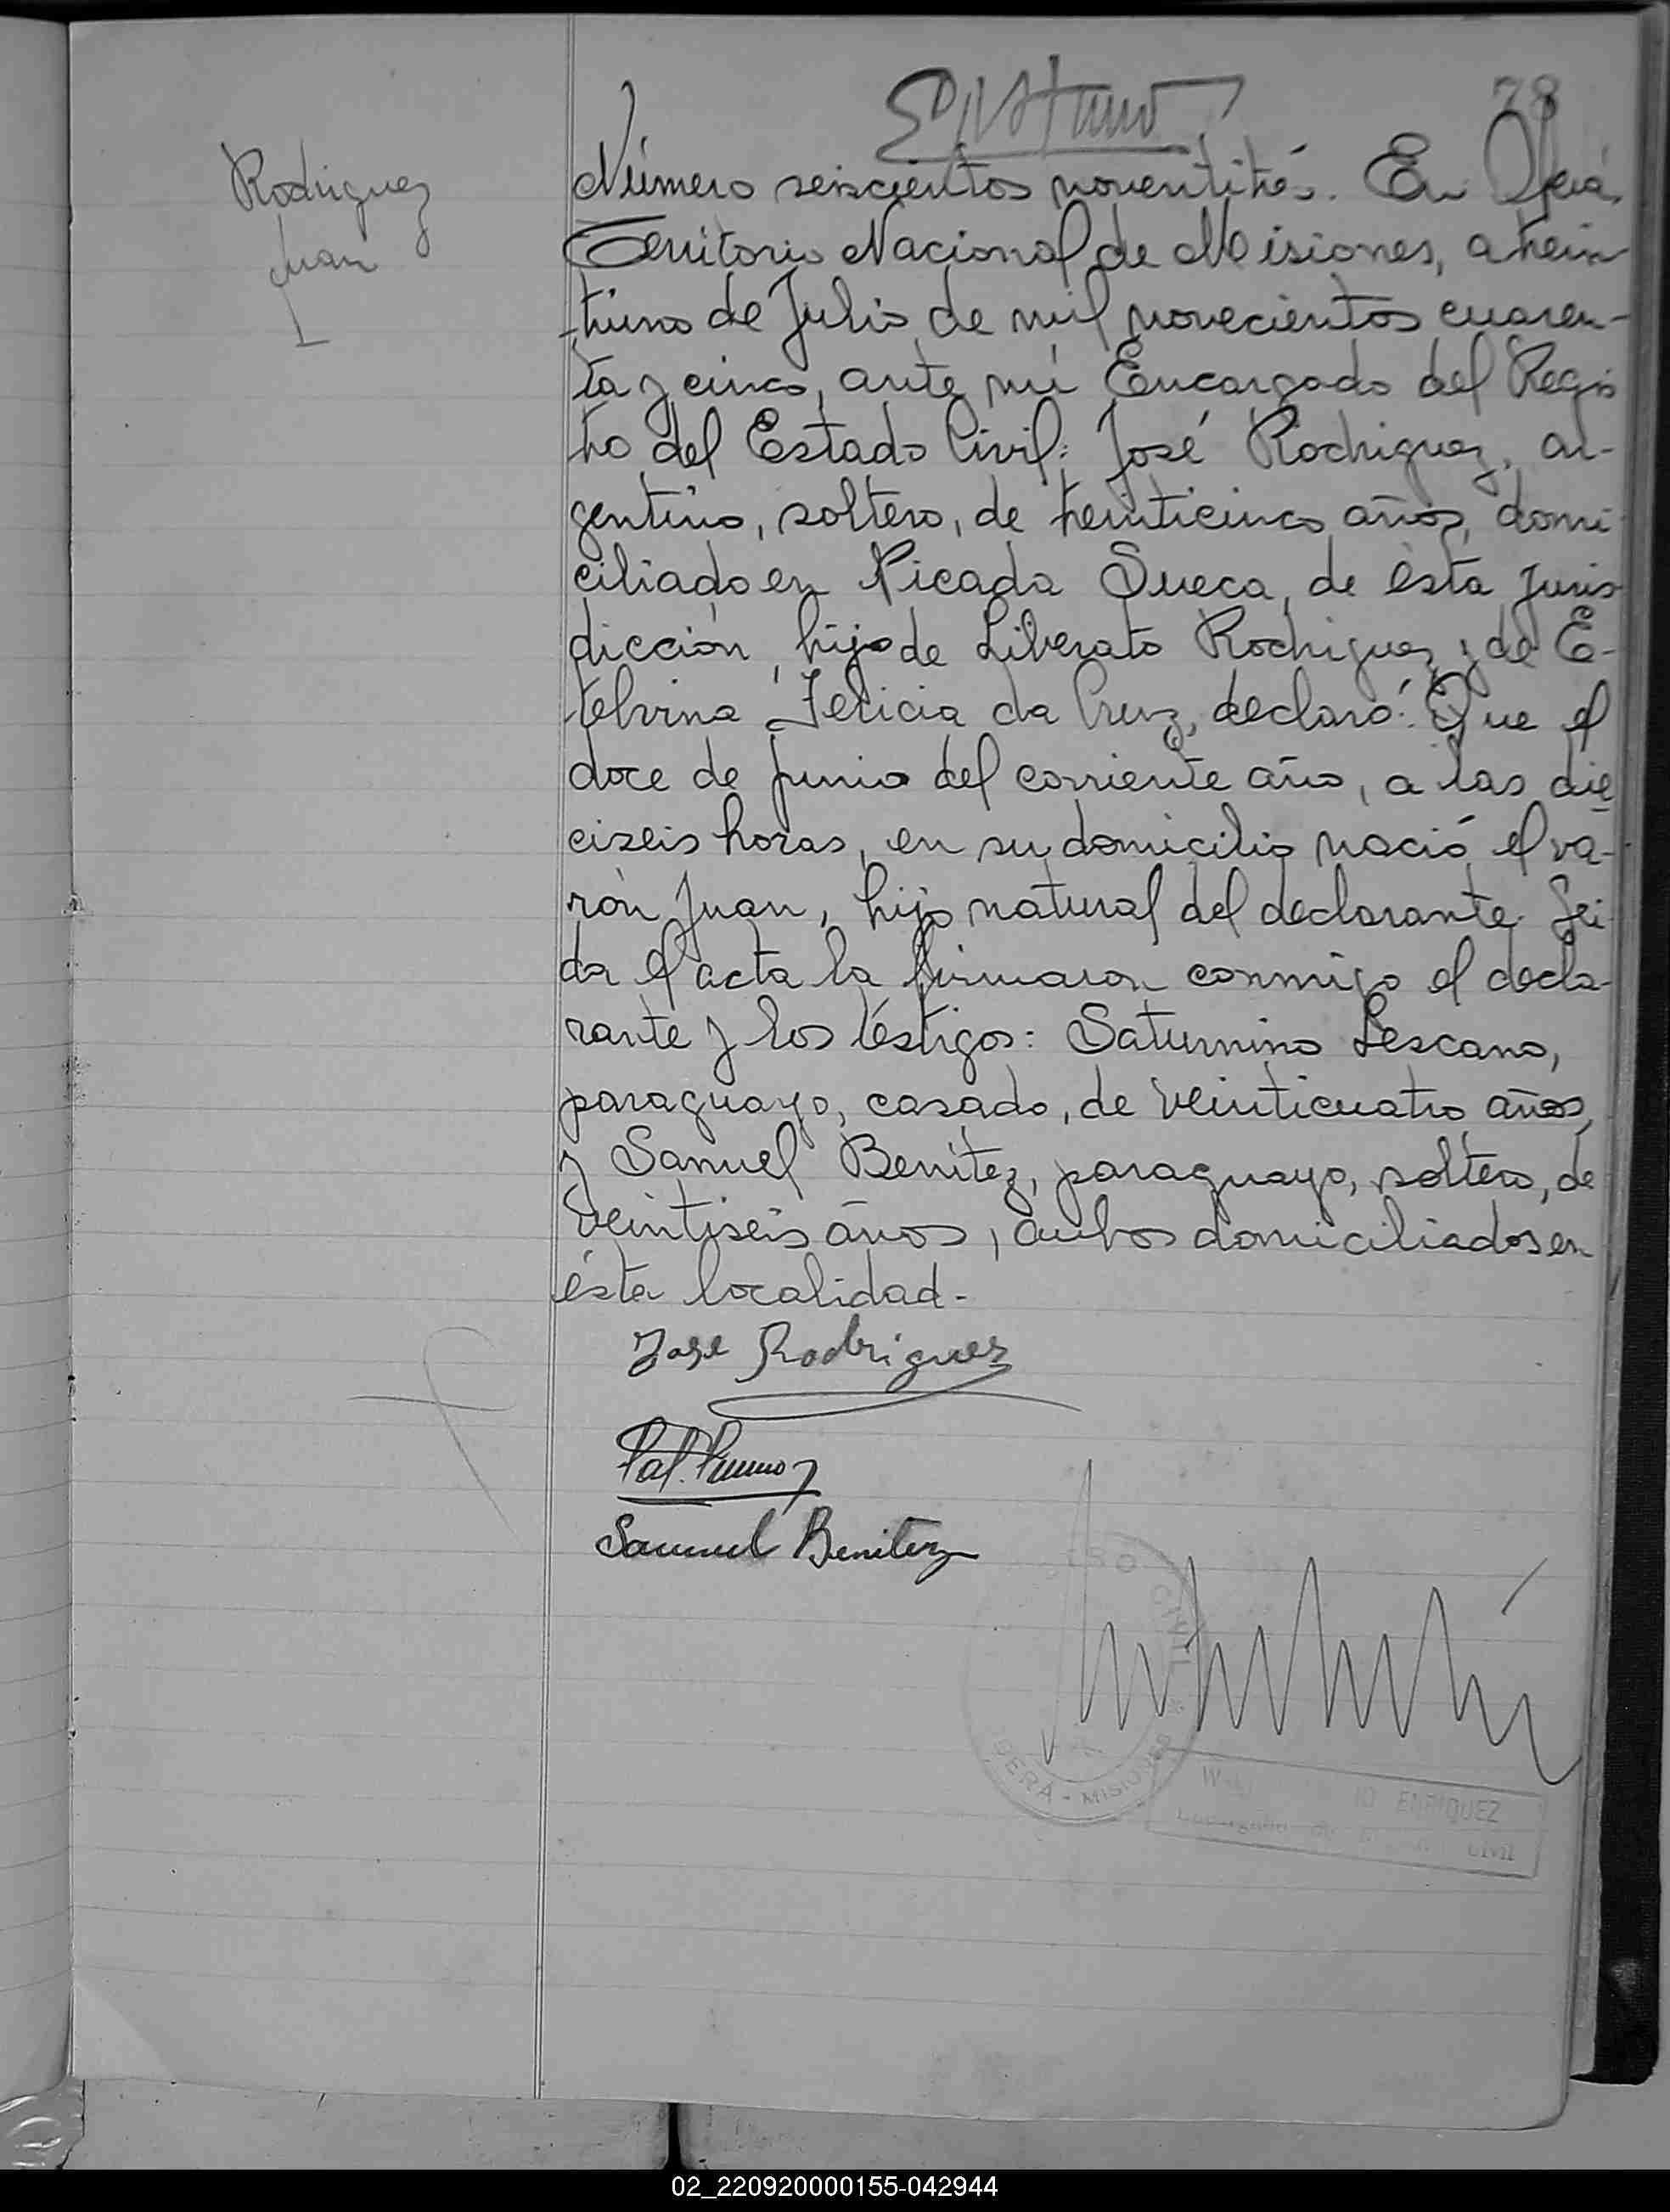 78
Rodriguez
Juan
Número seiscientos noventitrés. En Oberá,
Territorio Nacional de Misiones, a trein-
tiuno de Julio de mil novecientos cuaren-
ta y cinco, ante mí Encargado del Regis
tro del Estado Civil: José Rodriguez, ar-
gentino, soltero, de treinticinco años, domi
ciliado en Picada Sueca, de ésta juris
dicción, hijo de Liberato Rodriguez y de E-
telvina Felicia da Cruz, declaró: Que el
doce de junio del corriente año, a las die
ciseis horas, en su domicilio nació el va-
rón Juan, hijo natural del declarante. Leí
da el acta la firmaron conmigo el decla-
rante y los téstigos: Saturnino Lescano,
paraguayo, casado, de veinticuatro años,
y Samuel Benítez, paraguayo, soltero, de
veintiseis años, ambos domiciliados en
ésta localidad.
Jose Rodriguez
Samuel Benitez
CIVIL
OBERÁ - MISIONES
ENRIQUEZ
Civil
02_220920000155-042944